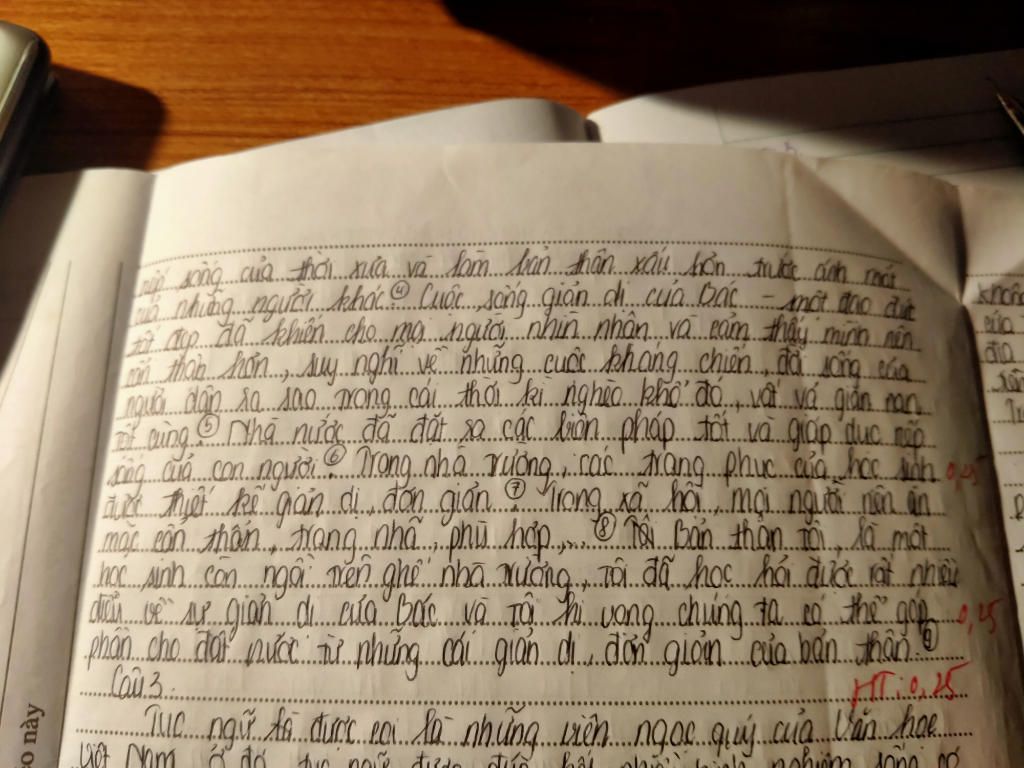 nếp sống của thời xưa và làm bản thân xấu hơn trước ánh mắt
của những người khác ④ Cuộc sống giản dị của Bác – một đạo đức
tốt đẹp đã khiến cho mọi người nhìn nhận và cảm thấy mình nên
cẩn thận hơn, suy nghĩ về những cuộc kháng chiến, đời sống của
người dân ra sao trong cái thời kì nghèo khổ đó, vất vả gian nan
tột cùng. ⑤ Nhà nước đã đặt ra các biện pháp tốt và giáp dục nếp
sống của con người. ⑥ Trong nhà trường, các trang phục của học sinh 0,25
được thiết kế giản dị, đơn giản. ⑦ Trong xã hội, mọi người nên ăn
mặc cẩn thận, trang nhã, phù hợp,... ⑧ Tôi Bản thân tôi, là một
học sinh còn ngồi trên ghế nhà trường, tôi đã học hỏi được rất nhiều
điều về sự giản dị của Bác và tôi hi vọng chúng ta có thể góp 0,25
phần cho đất nước từ những cái giản dị, đơn giản của bản thân. ⑨
Câu 3. HT: 0,25
Tục ngữ là được coi là những viên ngọc quý của Văn học
Việt Nam, ở đó, tục ngữ được
so này
không
của